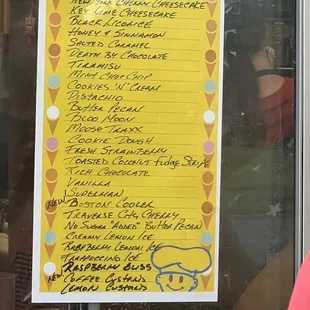 New York Cherry Cheesecake
Key Lime Cheesecake
Black Licorice
Honey & Sinnamon
Salted Caramel
Death By Chocolate
Tiramisu
Mint Choc Chip
Cookies 'N' Cream
Pistachio
Butter Pecan
Bloo Moon
Moose Traxx
Cookie Dough
Fresh Strawberry
Toasted Coconut Fudge Stripe
Rich Chocolate
Vanilla
Superman
New Boston Cooler
Traverse City Cherry
No Sugar "Added" Butter Pecan
Creamy Lemon Ice
Raspberry Lemon Ice
Frappuccino Ice
Raspberry Bliss
New Coffee Custard
Lemon Custard